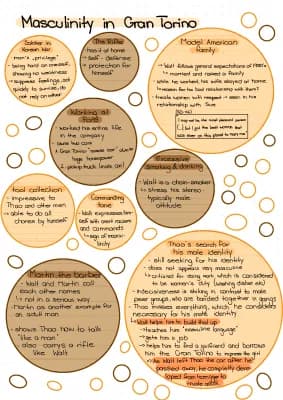 Masculinity in Gran Torino
Soldier in
Korean War
man's "privilege"
being hard on oneself,
showing no weakness
→ suppress feelings, act
quickly to survive, do
not rely on other
The Rifle
has it at home
→ self-defense
→ protection for
himself
Model American
family
Walt follows general expectations of men:
→ married and raised a family
→ while he worked, his wife stayed at home
→ reason for the bad relationship with them?
→ treats women with respect → seen in his
relationship with Sue
Working at
Ford
worked his entire life
in the company
→ owns two cars
Gran Torino "muscle car" due to
huge horsepower
pickup truck
Excessive
smoking & drinking
Walt is a chain-smoker
→ stress his stereo-
typically male
attitude
tool collection
→ impressive to
Thao and other men
→ able to do all
chores by himself
Commanding
tone
Walt expresses him-
self with overt racism
and commands
→ sign of mascu-
linity
Martin the barber
Walt and Martin call
each other names
→ not in a serious way
Martin as another example for
an adult man
→ shows Thao how to talk
"like a man"
also carries a rifle
like Walt
Thao's search for
his male identity
still seeking for his identity
→ does not appear very masculine
→ criticised for doing work which is considered
to be women's duty (washing dishes etc)
indecisiveness is striking in contrast to male
peer groups, who are banded together in gangs
Thao misses everything, which he considers
necessary for his male identity
→ Walt helps him to build that up
→ teaches him "masculine language"
→ gets him a job
→ helps him to find a girlfriend and borrows
him the Gran Torino to impress the girl
→ Walt left Thao the car after he
passed away, he completely deve-
loped from teenager to